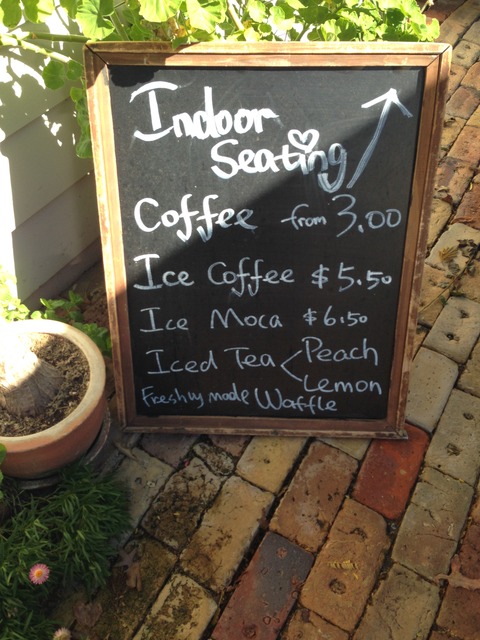 Indoor
Seating
Coffee from 3.00
Ice Coffee $5.50
Ice Moca $6.50
Iced Tea < Peach
Lemon
Freshly made Waffle